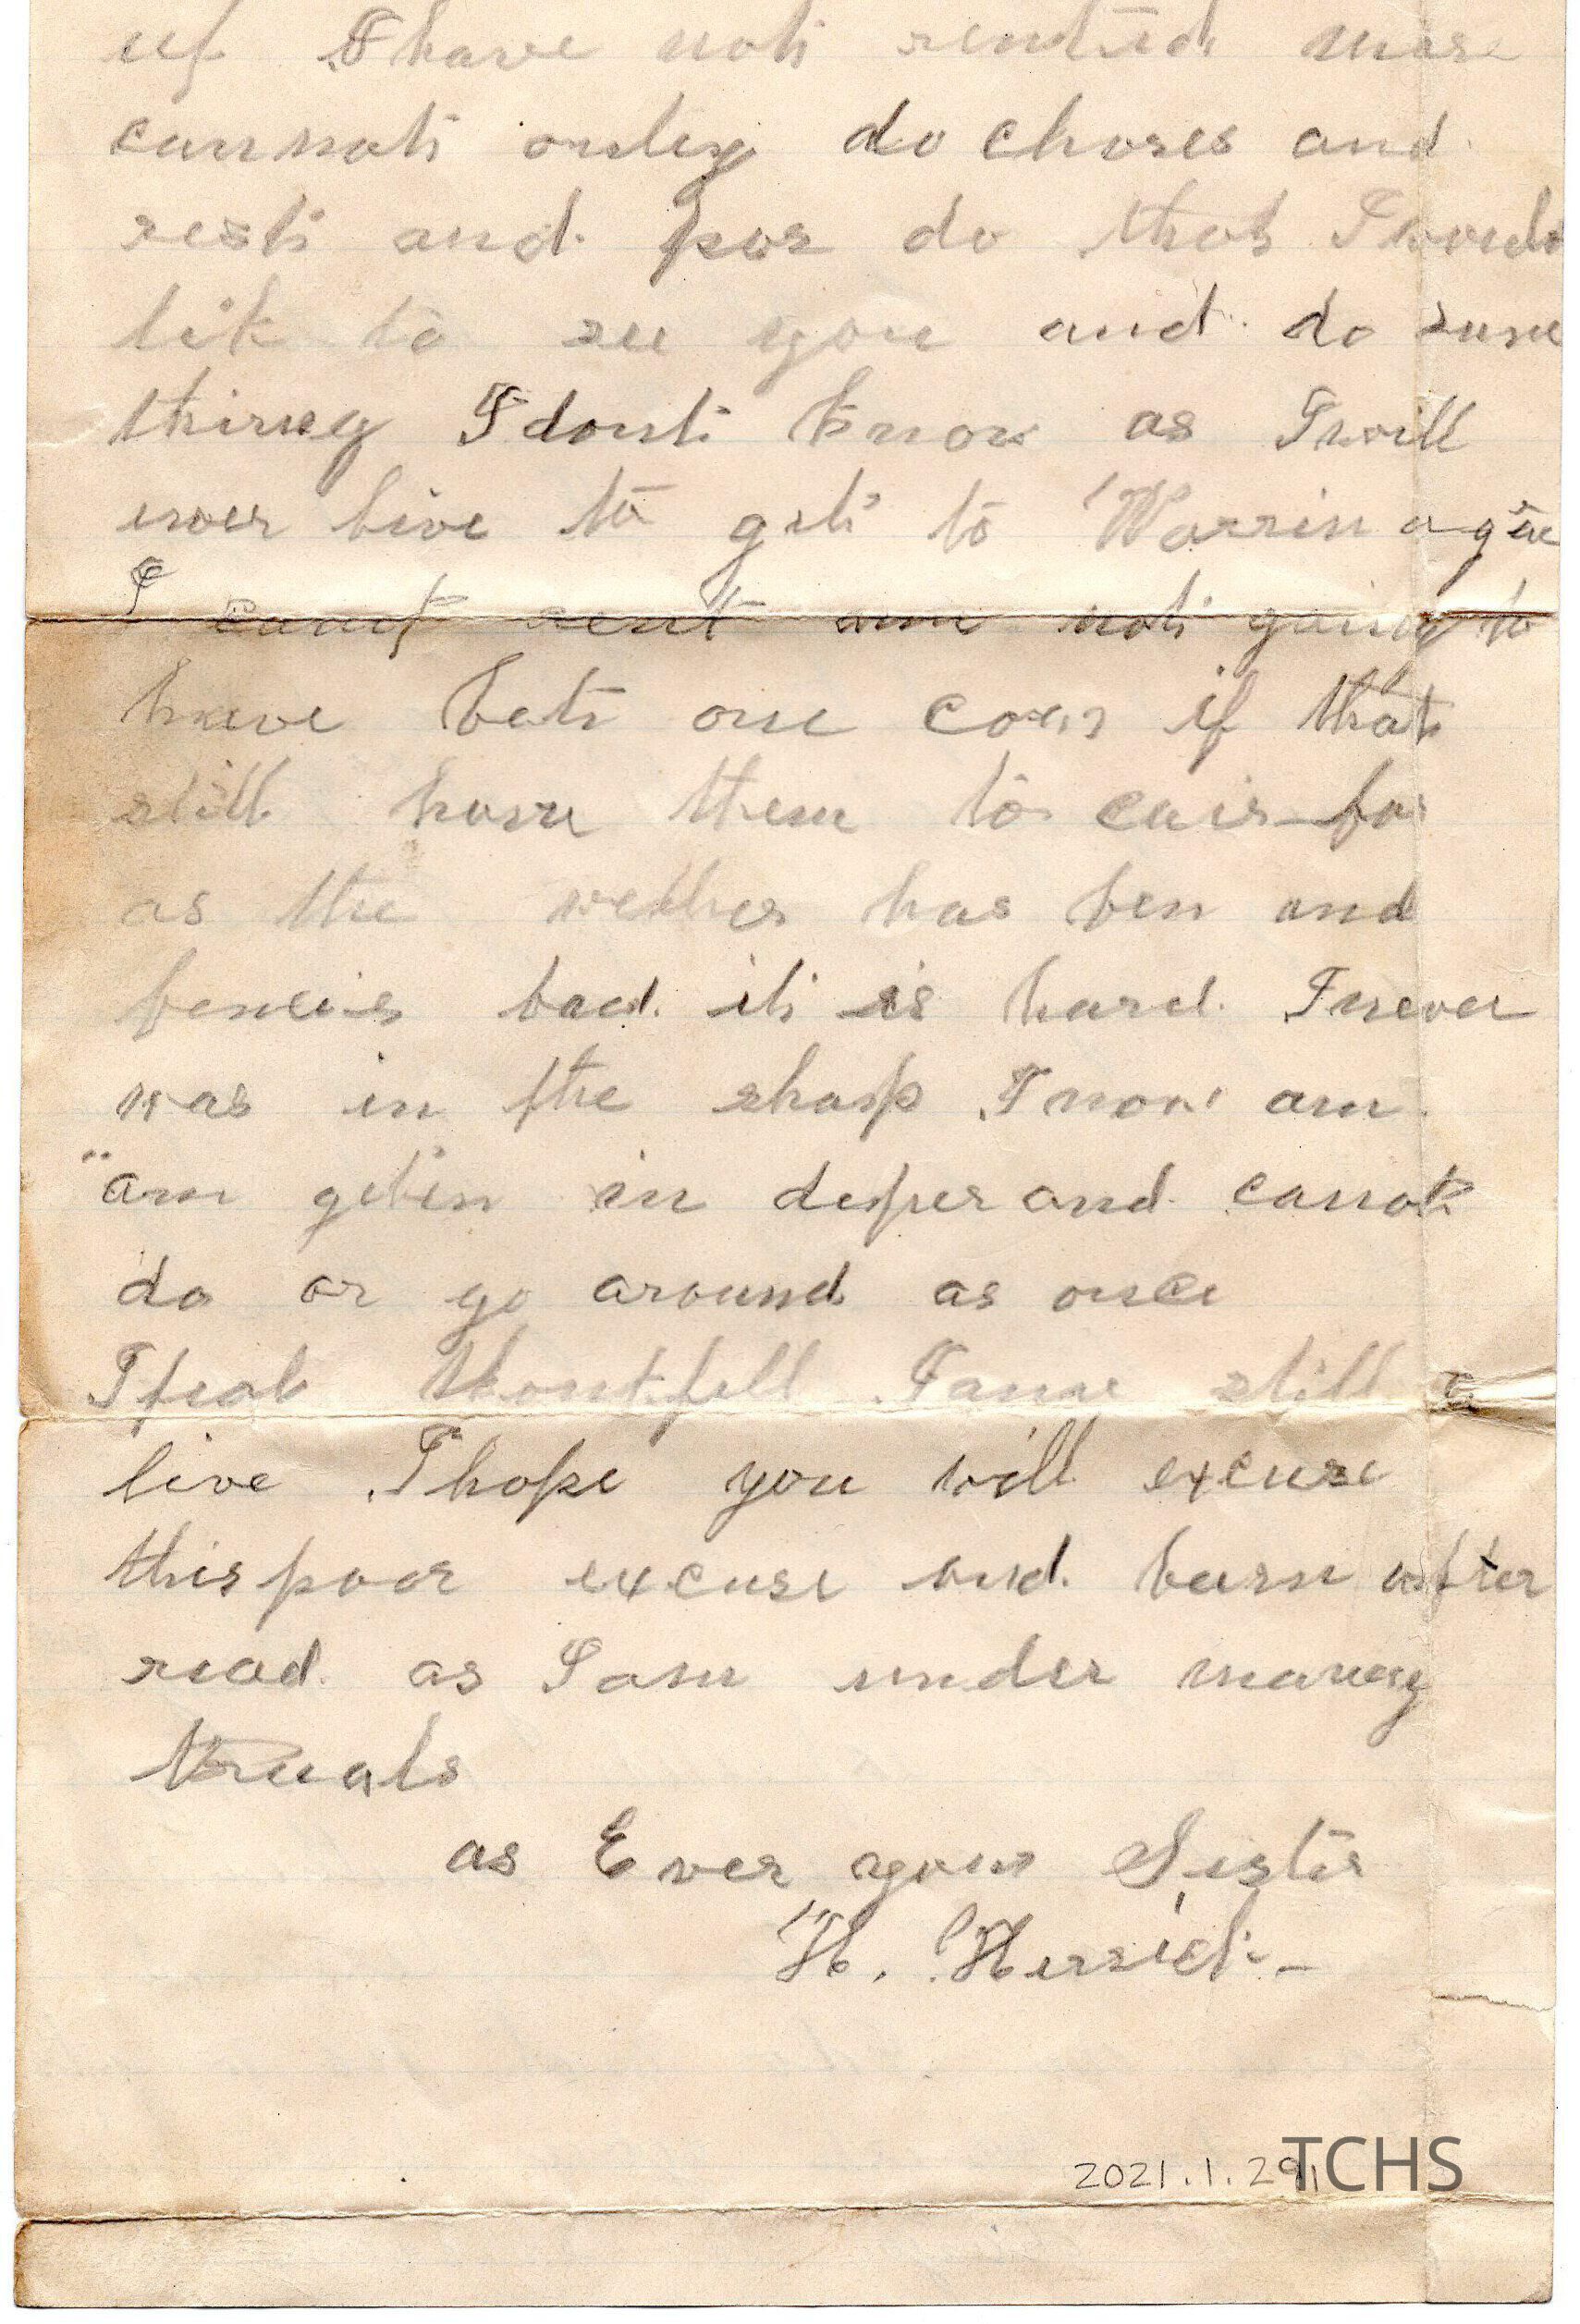 uf I have not rented nor
cannot onley do chores and
rest and por do that I would
lik to see you and do sum
thing I dont know as I will
ever live to get to Warrin agin
I cant rent am not going to
have bot one cow if that
still have them to cair for
as the wether has ben and
fences bad it is hard I never
was in the shap I now am
am getin in deper and cannot
do or go around as once
I feal thankfull I am still a
live I hope you will excuse
this poor excuse and burn after
read as I am under maney
truals
as Ever your Sister
H. Hersich
2021.1.29
TCHS